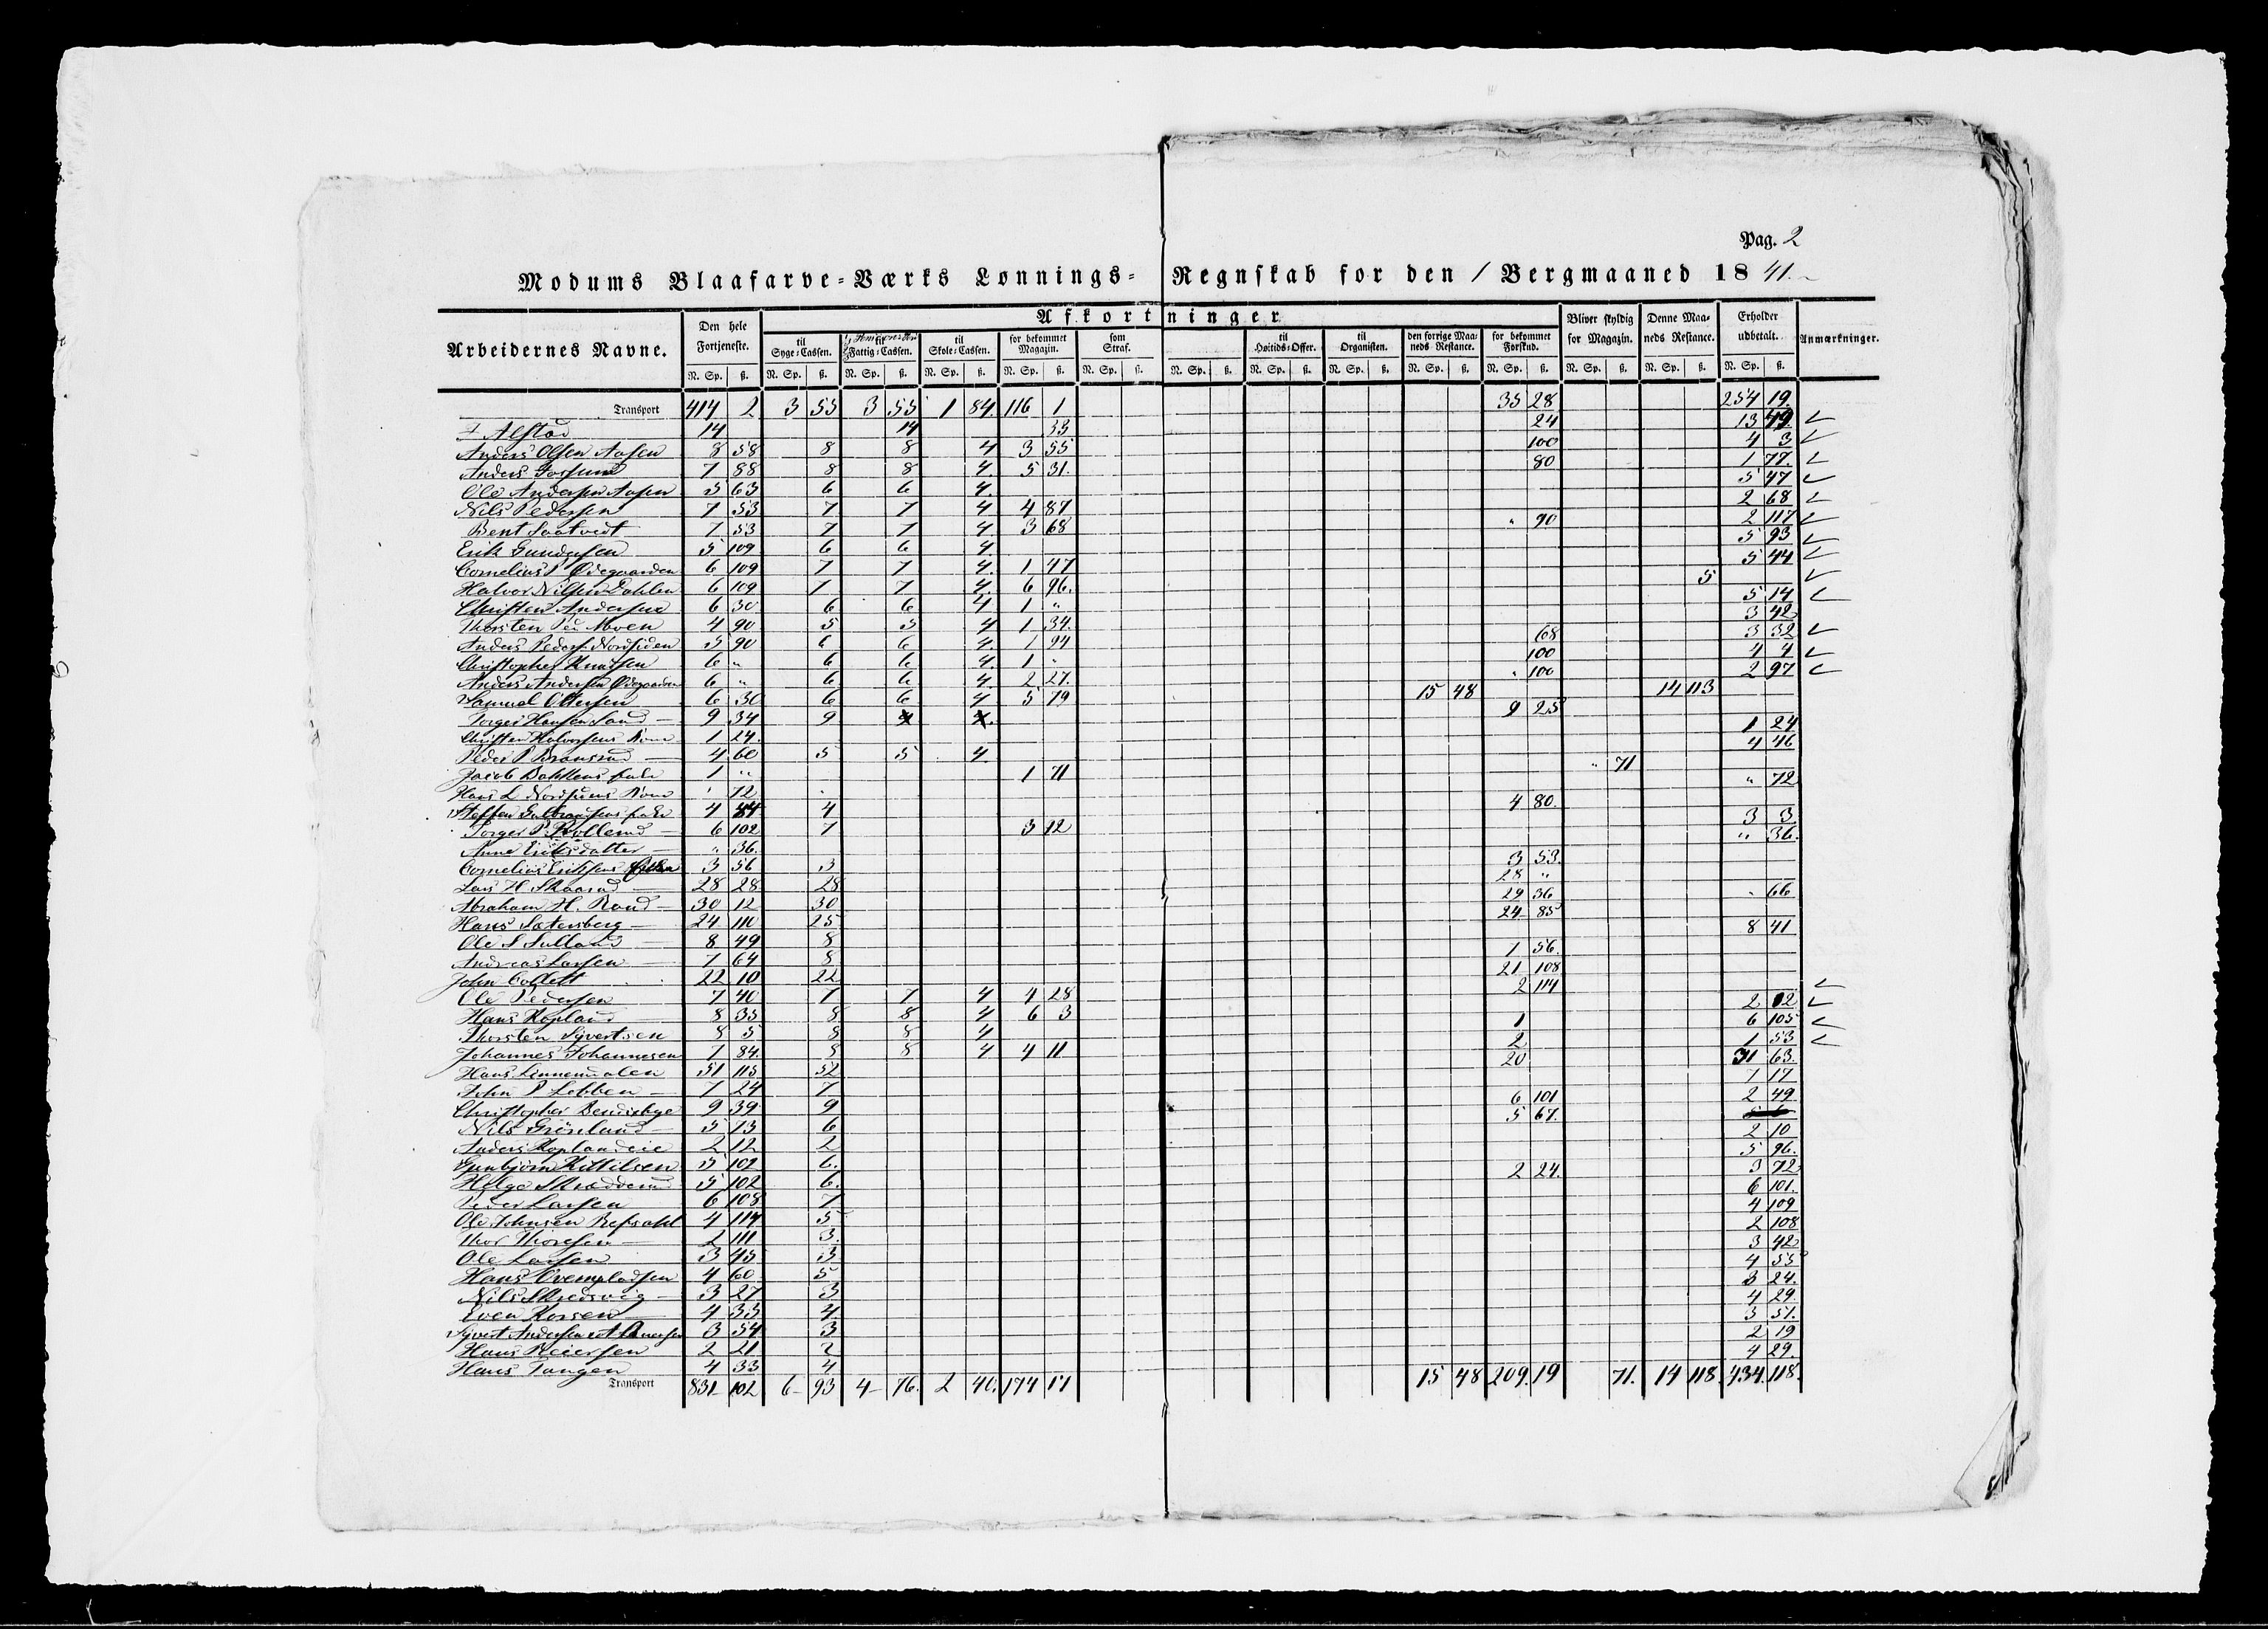 Pag. 2
Modums Blaafarve=Værks Lønnings=Regnskab for den 1 Bergmaaned 1841.
Arbeidernes Navne. Den hele Fortjeneste. Afkortninger Bliver skyldig for Magazin. Denne Maaneds Restance. Erholder udbetalt. Anmærkninger.
til Syge=Cassen. til Fattig=Cassen. til Skole=Cassen. for bekommet Magazin. som Straf. til Høitids=Offer. til Organisten. den forrige Maaneds Restance. for bekommet Forskud.
N. Sp. ß. N. Sp. ß. N. Sp. ß. N. Sp. ß. N. Sp. ß. N. Sp. ß. N. Sp. ß. N. Sp. ß. N. Sp. ß. N. Sp. ß. N. Sp. ß. N. Sp. ß. N. Sp. ß. N. Sp. ß.
Transport 414 2 3 55 3 55 1 84 116 1 35 28 254 19.
Alstad 14 14 33 24 13 49
Anders Olsen Aasen 8 58 8 8 4 3 55 100 4 3
Anders Fossum 7 88 8 8 4. 5 31. 80 1 77.
Ole Andersen Aasen 5 63 6 6 4. 5 47
Nils Pedersen 7 53 7 7 4 4 87 2 68
Bent Saatvedt 7 53 7 7 4 3 68 " 90 2 117
Erik Gundersen 5 109 6 6 4 5 93
Cornelius P Ødegaarden 6 109 7 7 4. 1 47 5 44
Halvor Nilsen Dahlen 6 109 7 7 4. 6 96. 5
Christen Andersen 6 30 6 6 4 1 " 5 14
Thorsten Moen 4 90 5 5 4 1 34. 3 42
Anders Peders. Nordsiden 5 90 6 6 4. 1 24 68 3 32
Christopher Knudsen 6 " 6 6 4. 1 " 100 4 4
Anders Andersen Ødegaarden 6 " 6 6 4. 2 27. " 100 2 97
Samuel Ottersen 6 30 6 6 4 5 79 15 48 14 113
Torger Hansen Sand 9 34 9 9 25
Christen Halvorsens Kone 1 24. 1 24
Peder P Bransrud 4 60 5 5 4 4 46
Jacob Dahlens 1 " 1 71 " 71
Hans L Nordsiens Kone " 72 " 72
Steffen 4 84 4 4 80.
Torger P 6 102 7 3 12 3 3.
Anne Eriksdatter " 36. " 36.
Cornelius Eriksens 3 56 3 3 53.
Lars H. Skaarud 28 28 28 28 "
Abraham H. Roud 30 12 30 29 36 " 66
Hans Sætersberg 24 110 25 24 85
Ole S 8 49 8 8 41
Andreas Larsen 7 64 8 7 56.
John Collett 22 10 22 21 108
Ole Pedersen 7 40 7 7 4 4 28 2 114
Hans Kopland 8 35 8 8 4 6 3 2 12
Thorsten Syvertsen 8 5 8 8 4 1 6 105
Johannes Johannesen 7 84. 8 8 4 4 11 2 1 53
Hans Linnerudalen 51 115 52 20 31 63.
John P Lobben 7 24 7 7 17
Christopher 9 39 9 6 101 2 49
Nils Grønlund 5 73 6 5 67.
Anders Koplandeie 2 12 2 2 10
Gunbjørn Kittilsen 5 102 6. 5 96.
Helge Skredderud 5 102 6. 2 24. 3 72
Peder Larsen 6 108 7 6 101.
Ole Johnsen Refsahl 4 114 5 4 109
Thor Thoresen 2 111 3. 2 108
Ole Larsen 3 45 3 3 42
Hans Ovenpladsen 4 60 5 4 55
Nils Skredsvig 3 27 3 3 24.
Even Korsen 4 33 4 4 29.
Syvert Andersen 3 54 3 3 51.
Hans Reiersen 2 21 2 2 19
Hans Tangen 4 33 4 4 29.
Transport 831 102 6 93 4 76. 2 40. 174 17 15 48 209. 19 71. 14 118. 434. 118.